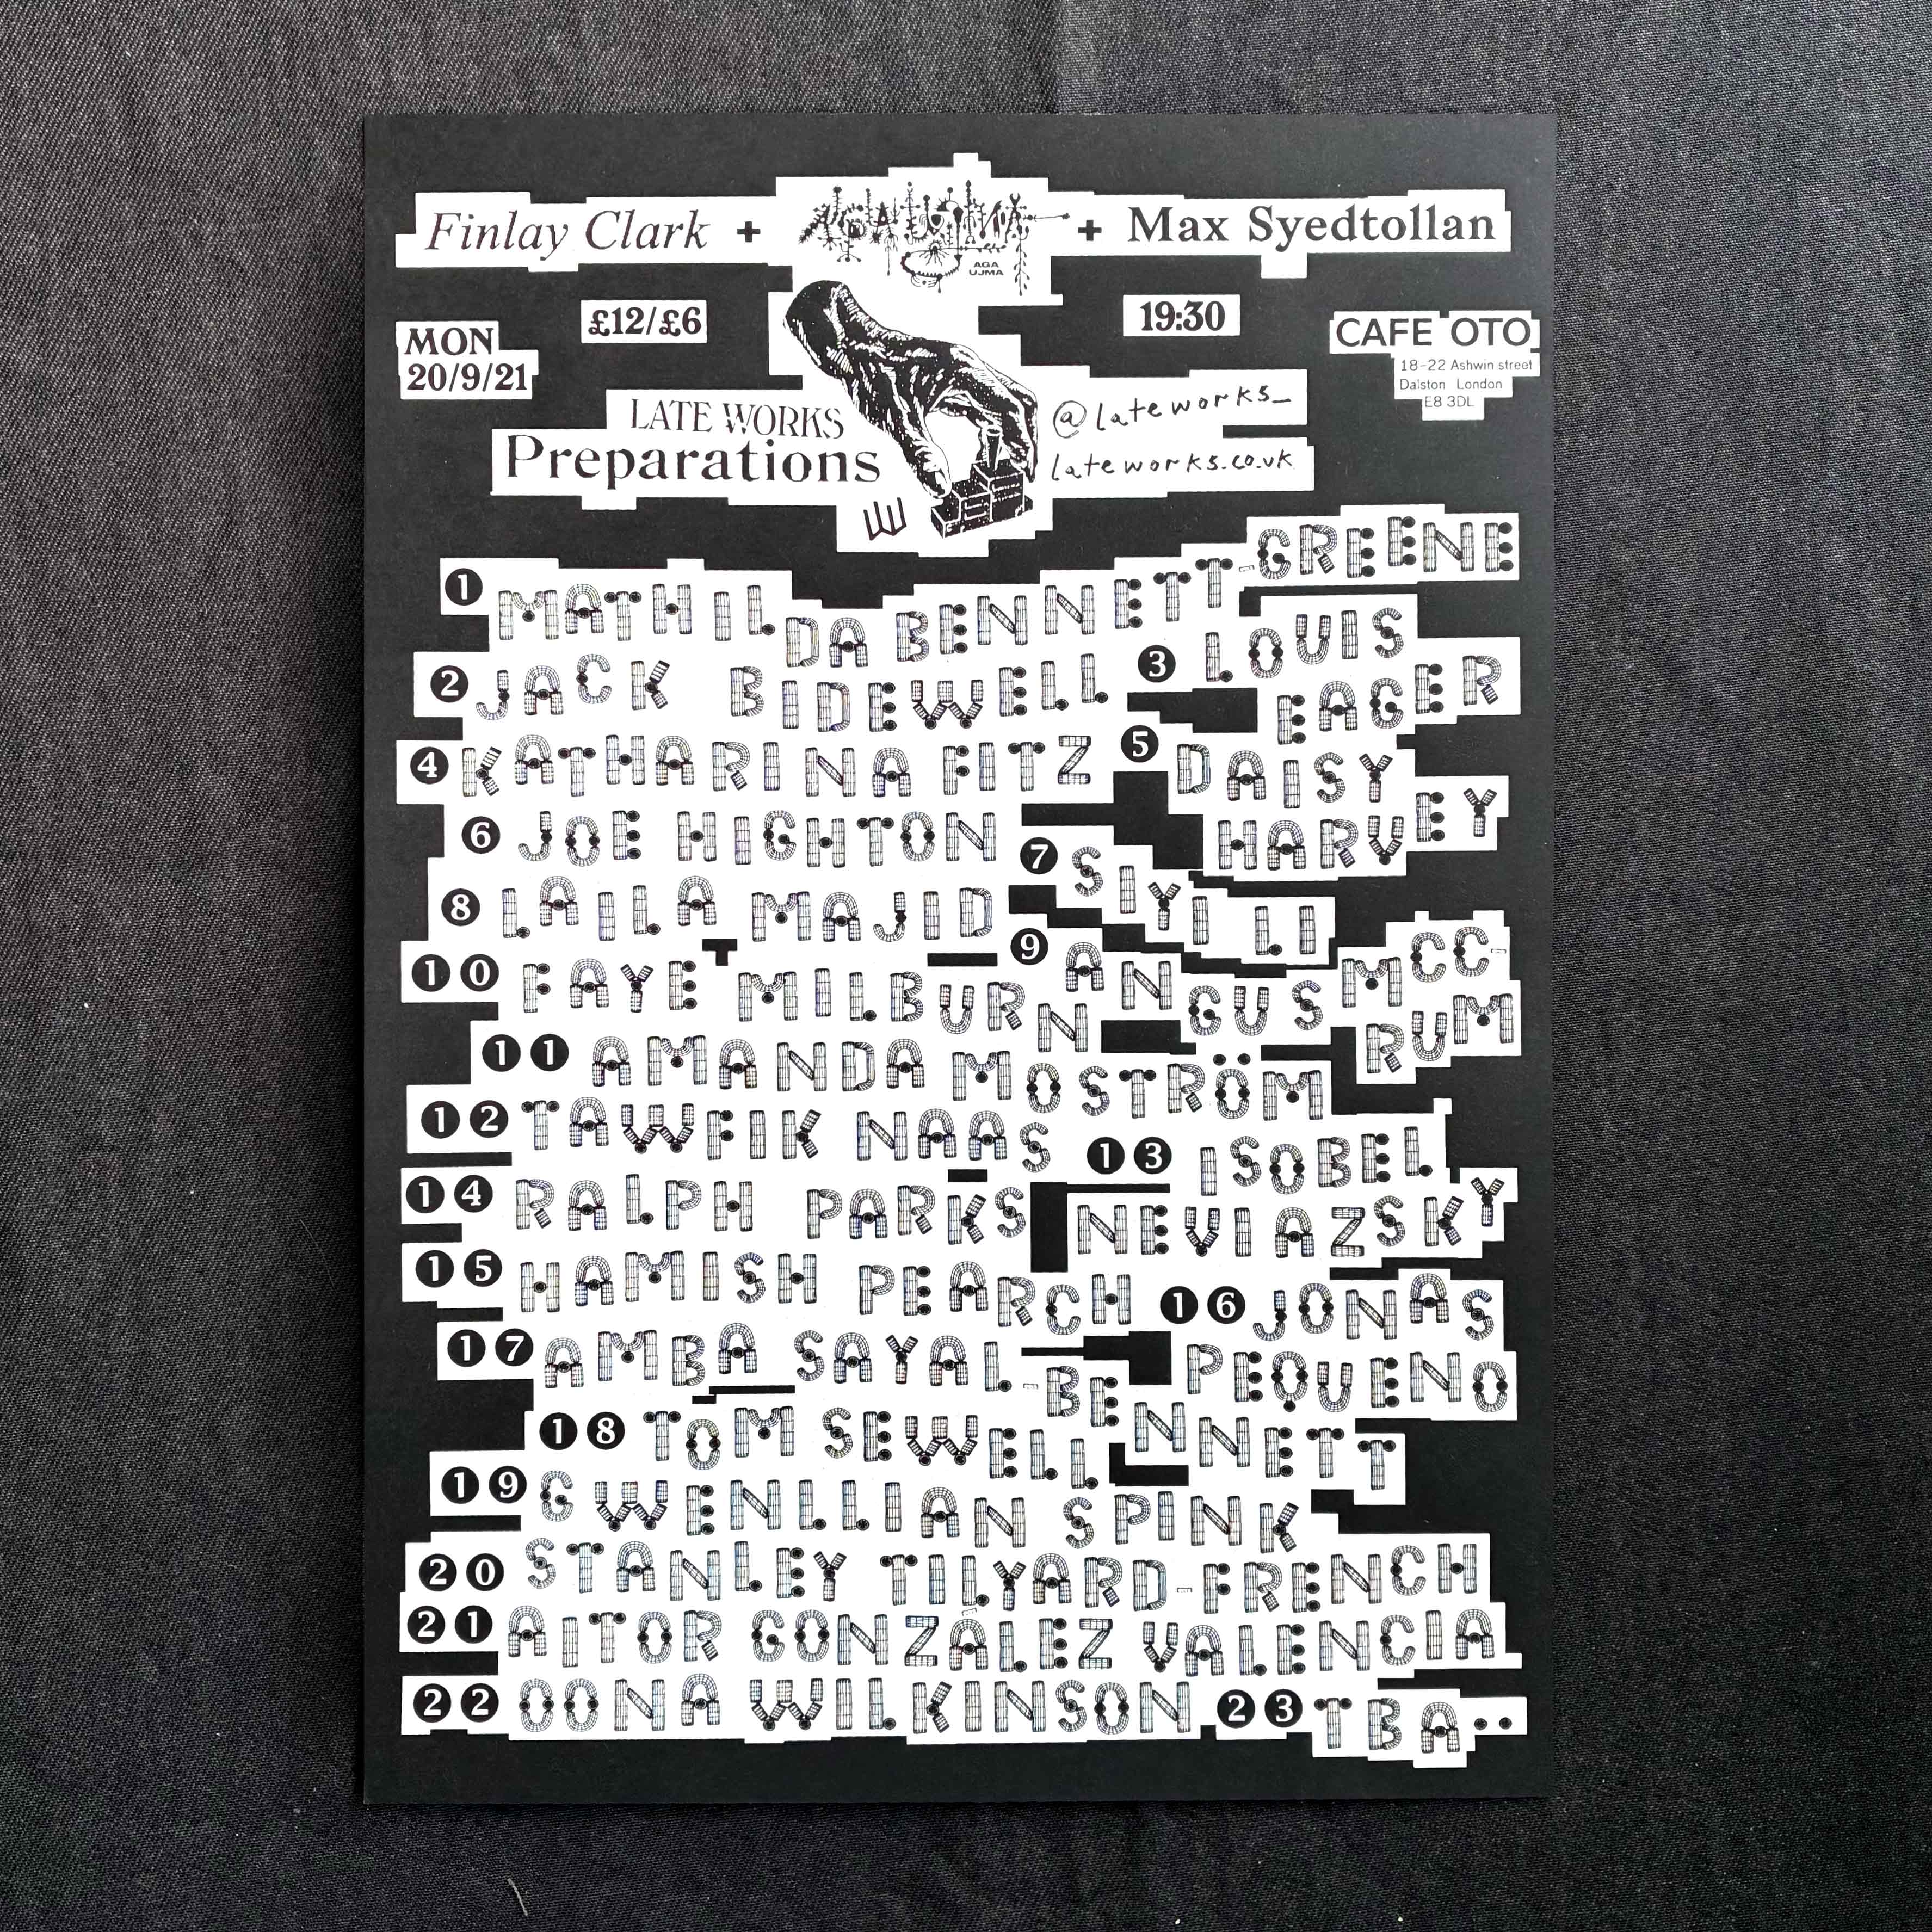 Finlay Clark + AGA UJMA + Max Syedtollan
AGA UJMA
MON
20/9/21
£12/£6
19:30
CAFE OTO
18-22 Ashwin street
Dalston London
E8 3DL
LATE WORKS
Preparations
@lateworks_
lateworks.co.uk
1 MATHILDA BENNETT-GREENE
2 JACK BIDEWELL
3 LOUIS
EAGER
4 KATHARINA FITZ
5 DAISY
HARVEY
6 JOE HIGHTON
7 SIYI LI
8 LAILA MAJID
9 ANGUS MCC-
RUM
10 FAYE MILBURN
11 AMANDA MOSTRÖM
12 TAWFIK NAAS
13 ISOBEL
NEVIAZSKY
14 RALPH PARKS
15 HAMISH PEARCH
16 JONAS
PEQUENO
17 AMBA SAYAL-BENNETT
18 TOM SEWELL
19 GWENLLIAN SPINK
20 STANLEY TILYARD-FRENCH
21 AITOR GONZÁLEZ VALENCIA
22 OONA WILKINSON
23 TBA..